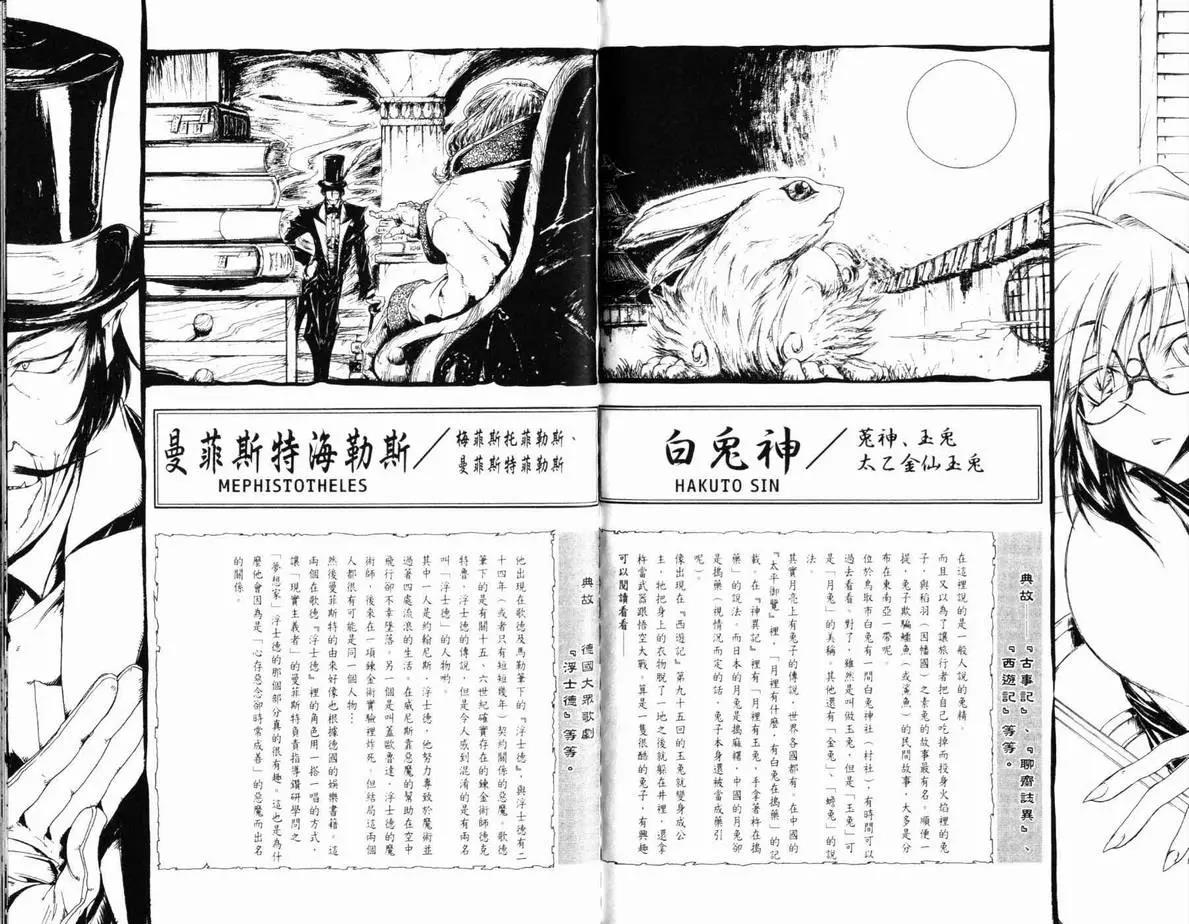 白兎神/
兎神、玉兎
太乙金仙玉兎
HAKUTO SIN
典故——『古事記』、『聊齋誌異』、
『西遊記』等等。
在這裡說的是一般人說的兔精。
而且又以為了讓旅行者把自己吃掉而投身火焰裡的兔
子,與稻羽(因幡國)之素兔的故事最有名。順便一
提,兔子欺騙鱷魚(或鯊魚)的民間故事,大多是分
布在東南亞一帶呢。
位於鳥取市白兔有一間白兔神社(村社),有時間可以
過去看看。對了,雖然是叫做玉兔,但是「玉兔」可
是「月兔」的美稱。其他還有「金兔」、「蟾兔」的說
法。
其實月亮上有兔子的傳說,世界各國都有。在中國的
『太平御覽』裡,「月裡有什麼,有白兔在搗藥」的記
載,在『神異記』裡有「月裡有玉兔,手拿著杵在搗
藥」的說法。而日本的月兔是搗麻糬,中國的月兔卻
是搗藥(視情況而定的話,兔子本身還被當成藥引
呢)。
像出現在『西遊記』第九十五回的玉兔就變身成公
主,牠把身上的衣物脫了一地之後就躲在井裡,還拿
杵當武器跟悟空大戰。算是一隻很酷的兔子,有興趣
可以閱讀看看——
曼菲斯特海勒斯/
梅菲斯托菲勒斯、
曼菲斯特菲勒斯
MEPHISTOTHELES
典故——德國大眾歌劇
『浮士德』等等。
他出現在歌德及馬勒筆下的『浮士德』,與浮士德有二
十四年(或者只有短短幾年)契約關係的惡魔。歌德
筆下的是有關十五、六世紀確實存在的鍊金術師德克
特魯・浮士德的傳說,但是令人感到混淆的是有兩名
叫「浮士德」的人物喲。
其中一人是約翰尼斯・浮士德,他努力專致於魔術並
過著四處流浪的生活。在威尼斯靠惡魔的幫助在空中
飛行卻不幸墜落。另一個是叫蓋歐魯達・浮士德的魔
術師,後來在一項鍊金術實驗裡炸死。但結局這兩個
人都很有可能是同一個人物…
然後曼菲斯特的由來好像也根據德國的娛樂書籍。這
兩個在歌德『浮士德』裡的角色用一搭一唱的方式,
讓「現實主義者」的曼菲斯特負責指導鑽研學問之
「夢想家」浮士德的那個部分真的很有趣。這也是為什
麼他會因為是「心存惡念卻時常成善」的惡魔而出名
的關係。